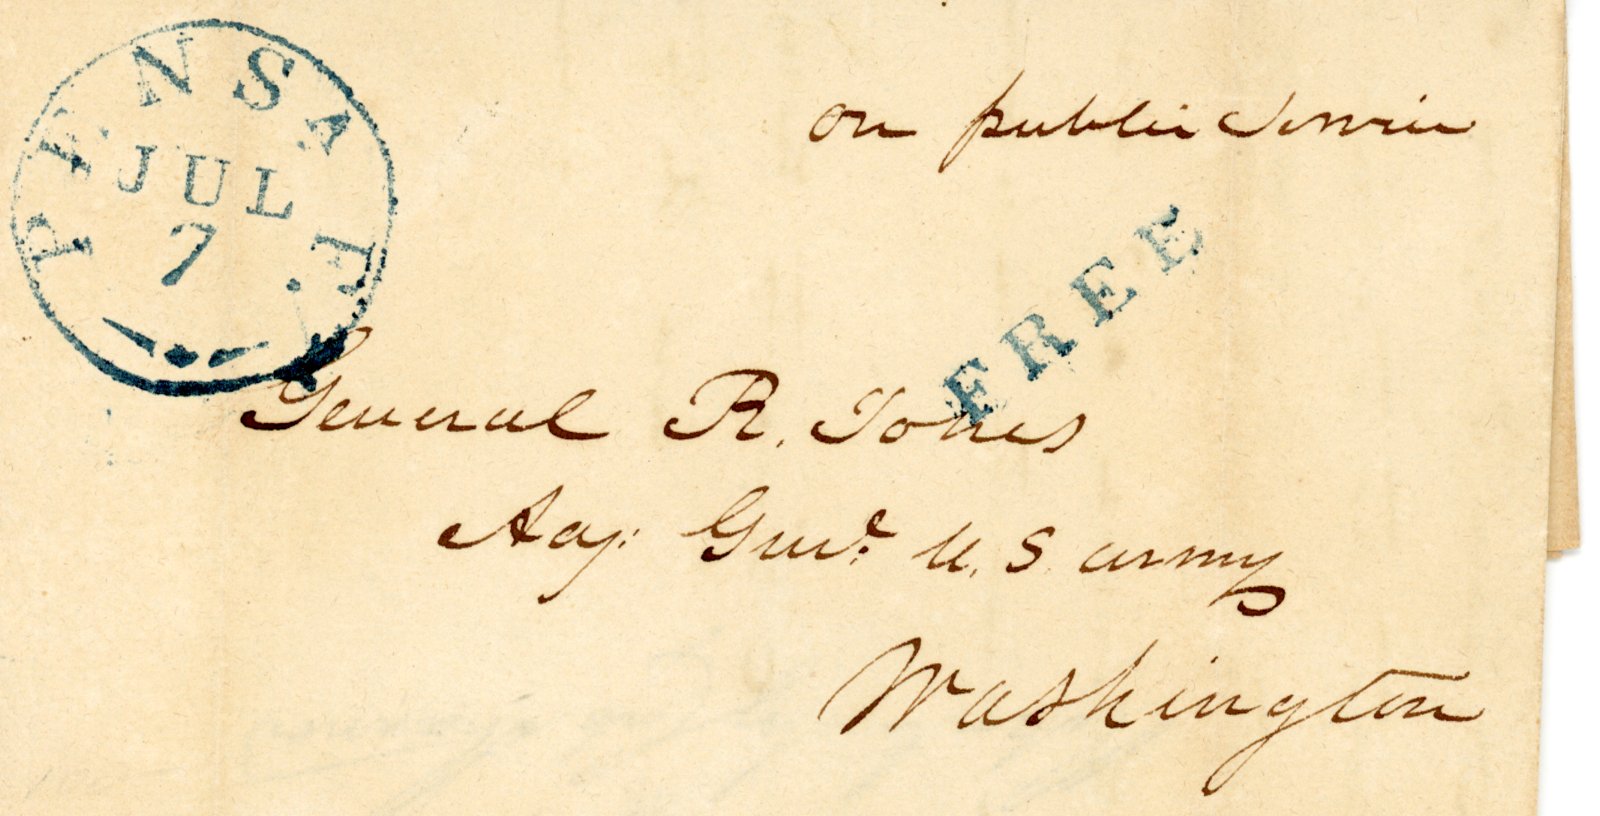 PENSA
JUL
7
on public Service
FREE
General R. Jones
Adj: Genl. U.S. army
Washington